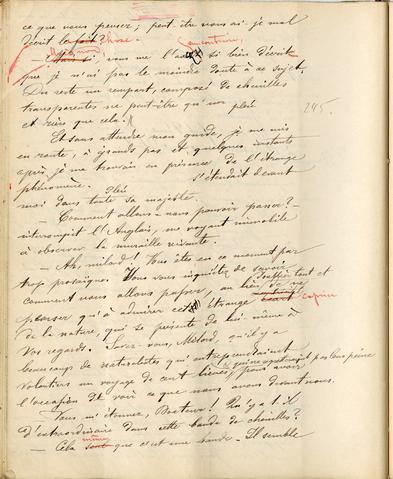 ce que vous pensez; peut être vous ai-je mal
décrit la chose?
si, vous me l'avez si bien décrite
que je n'ai pas le moindre doute à ce sujet.
Du reste un rempart, composé de chenilles
transparentes ne peut-être qu'un plié
et rien que cela!
245.
Et sans attendre mon guide, je me mis
en route, à grands pas et quelques instants
après je me trouvais en présence de l'étrange
phénomène. Plié s'étendait devant
moi dans toute sa majesté.
— Comment allons-nous pouvoir passer? —
interrompit l'Anglais, me voyant immobile
à observer la muraille vivante.
— Ah, milord! Vous êtes en ce moment par
trop prosaïque. Vous vous inquiétez de savoir
comment nous allons passer, au lieu de
penser qu'à admirer cet étrange caprice
de la nature, qui se présente de lui même à
vos regards. Savez-vous, Milord, qu'il y a
beaucoup de naturalistes qui entreprendraient
volontiers un voyage de cent lieues, pour avoir
l'occasion de voir ce que nous avons devant nous.
— Vous m'étonnez, Docteur! Qu'y a-t-il
d'extraordinaire dans cette bande de chenilles?
— Cela même que c'est une bande. Il semble